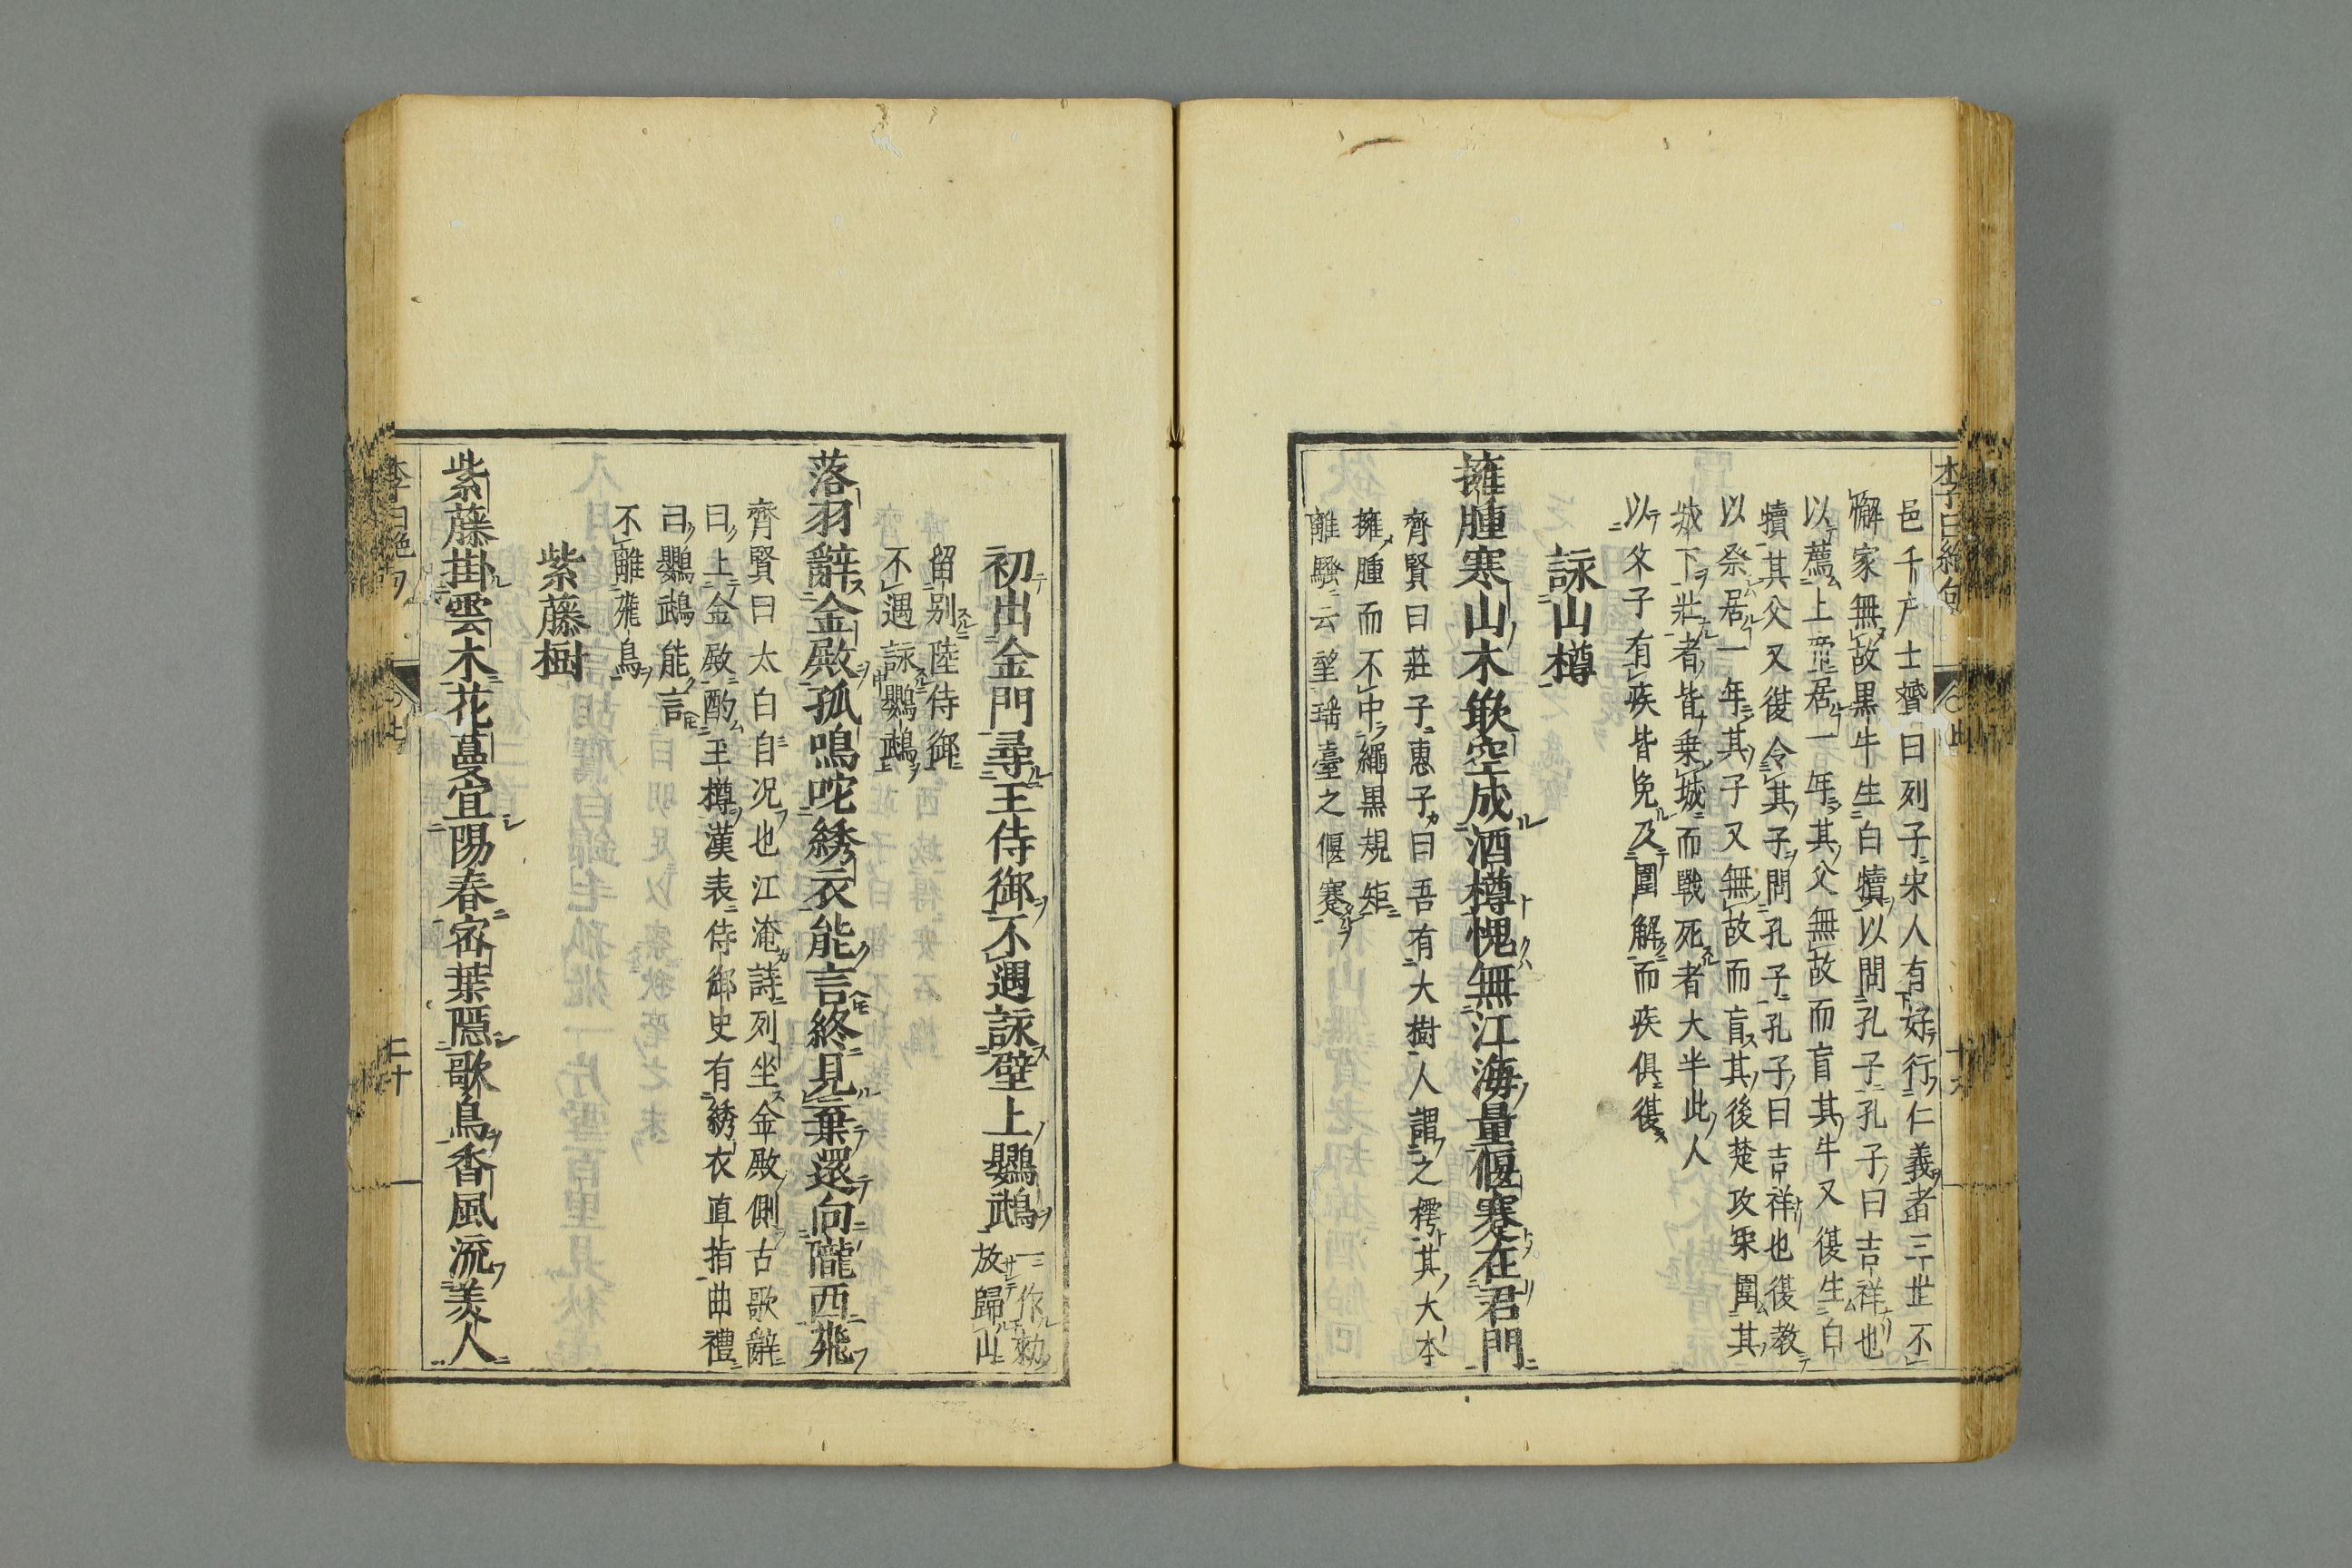 李白絶句
邑千戸士贇曰列子宋人有好行仁義者三世不
懈家無故黒牛生白犢以問孔子孔子曰吉祥也
以薦上帝居一年其父無故而盲其牛又復生白
犢其父又復令其子問孔子孔子曰吉祥也復教
以祭居一年其子又無故而盲其後楚攻宋圍其
城下壮者皆乗城而戰死者大半此人
以父子有疾皆免及圍解而疾俱復
詠山樽
擁腫寒山木嵌空成酒樽愧無江海量偃蹇在君門
齊賢曰莊子惠子曰吾有大樹人謂之樗其大本
擁腫而不中繩黒規矩
離騒云望瑶臺之偃蹇
初出金門尋王侍御不遇詠壁上鸚鵡
一作勅
放歸山
留别陸侍御
不遇詠鸚鵡
落羽辭金殿孤鳴咤綉衣能言終見棄還向隴西飛
齊賢曰太白自况也江淹詩列坐金殿側古歌辭
曰上金殿酌玉樽漢表侍御史有綉衣直指曲禮
曰鸚鵡能言
不離飛鳥
紫藤樹
紫藤掛雲木花蔓宜陽春密葉隱歌鳥香風流美人
李白絶句
二十